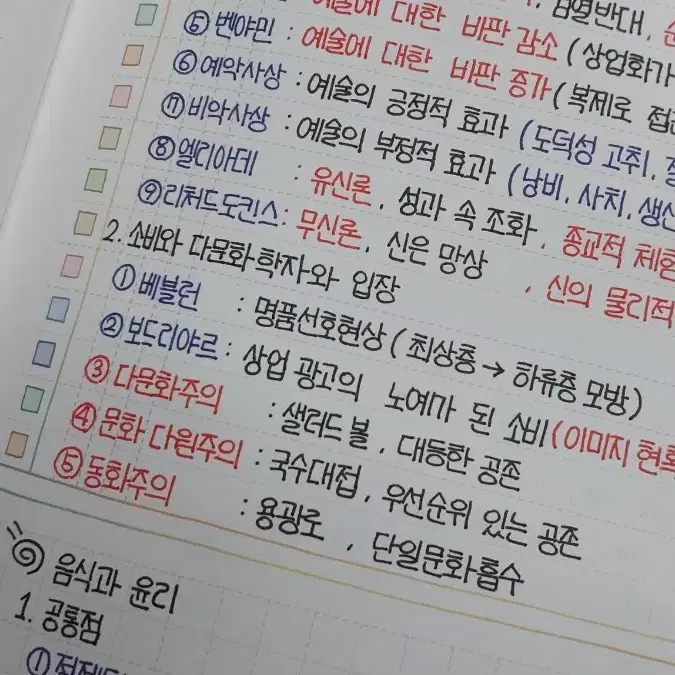 예술에 대한 비판 감소 (상업화가
⑤ 벤야민 : 예술에 대한 비판 증가 (복제로 접근
⑥ 예악사상 : 예술의 긍정적 효과 (도덕성 고취,
⑦ 비악사상 : 예술의 부정적 효과 (낭비, 사치, 생산
⑧ 엘리아데 : 유신론, 성과 속 조화, 종교적 체험
⑨ 리처드도킨스 : 무신론, 신은 망상, 신의 물리적
2. 소비와 다문화 학자와 입장
① 베블런 : 명품선호현상 (최상층 → 하류층 모방)
② 보드리야르 : 상업 광고의 노예가 된 소비 (이미지 현혹
③ 다문화주의 : 샐러드 볼, 대등한 공존
④ 문화 다원주의 : 국수대접, 우선순위 있는 공존
⑤ 동화주의 : 용광로, 단일문화흡수
음식과 윤리
1. 공통점
①